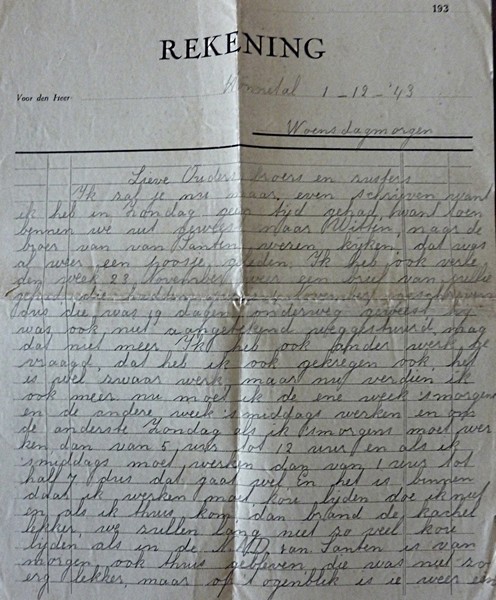 193
REKENING
Voor den Heer
1-12-'43
Woensdagmorgen
Lieve Ouders broers en zusjers
Ik zal je nu maar even schrijven want
ik heb in Zondag geen tijd gehad, want toen
bennen we uit geweest naar Witten, naar de
broer van van Santen weren kijken, dat was
al weer een poosje geleden. Ik heb ook verle
den week 23 November weer een brief van jullie
4 November
dus die was 19 dagen onderweg geweest hy
was ook niet aangetekend weggestuurd, mag
dat niet meer. Ik heb ook ander werk ge
vraagd, dat heb ik ook gekregen ook, het
is wel zwaar werk, maar nu verdien ik
ook meer nu moet ik de ene week smorgens
en de andere week smiddags werken en om
de anderste Zondag als ik smorgens moet wer
ken dan van 5 uur tot 12 uur en als ik
smiddags moet werken dan van 1 uur tot
half 7 dus dat gaat wel en het is binnen
daar ik werken moet kou lyden doe ik niet
en als ik thuis kom dan brand de kachel
lekker, we zullen lang niet zo veel kou
lyden als in de van Santen is van
morgen ook thuis gebleven die was niet zo
erg lekker, maar op t ogenblik is ie weer een